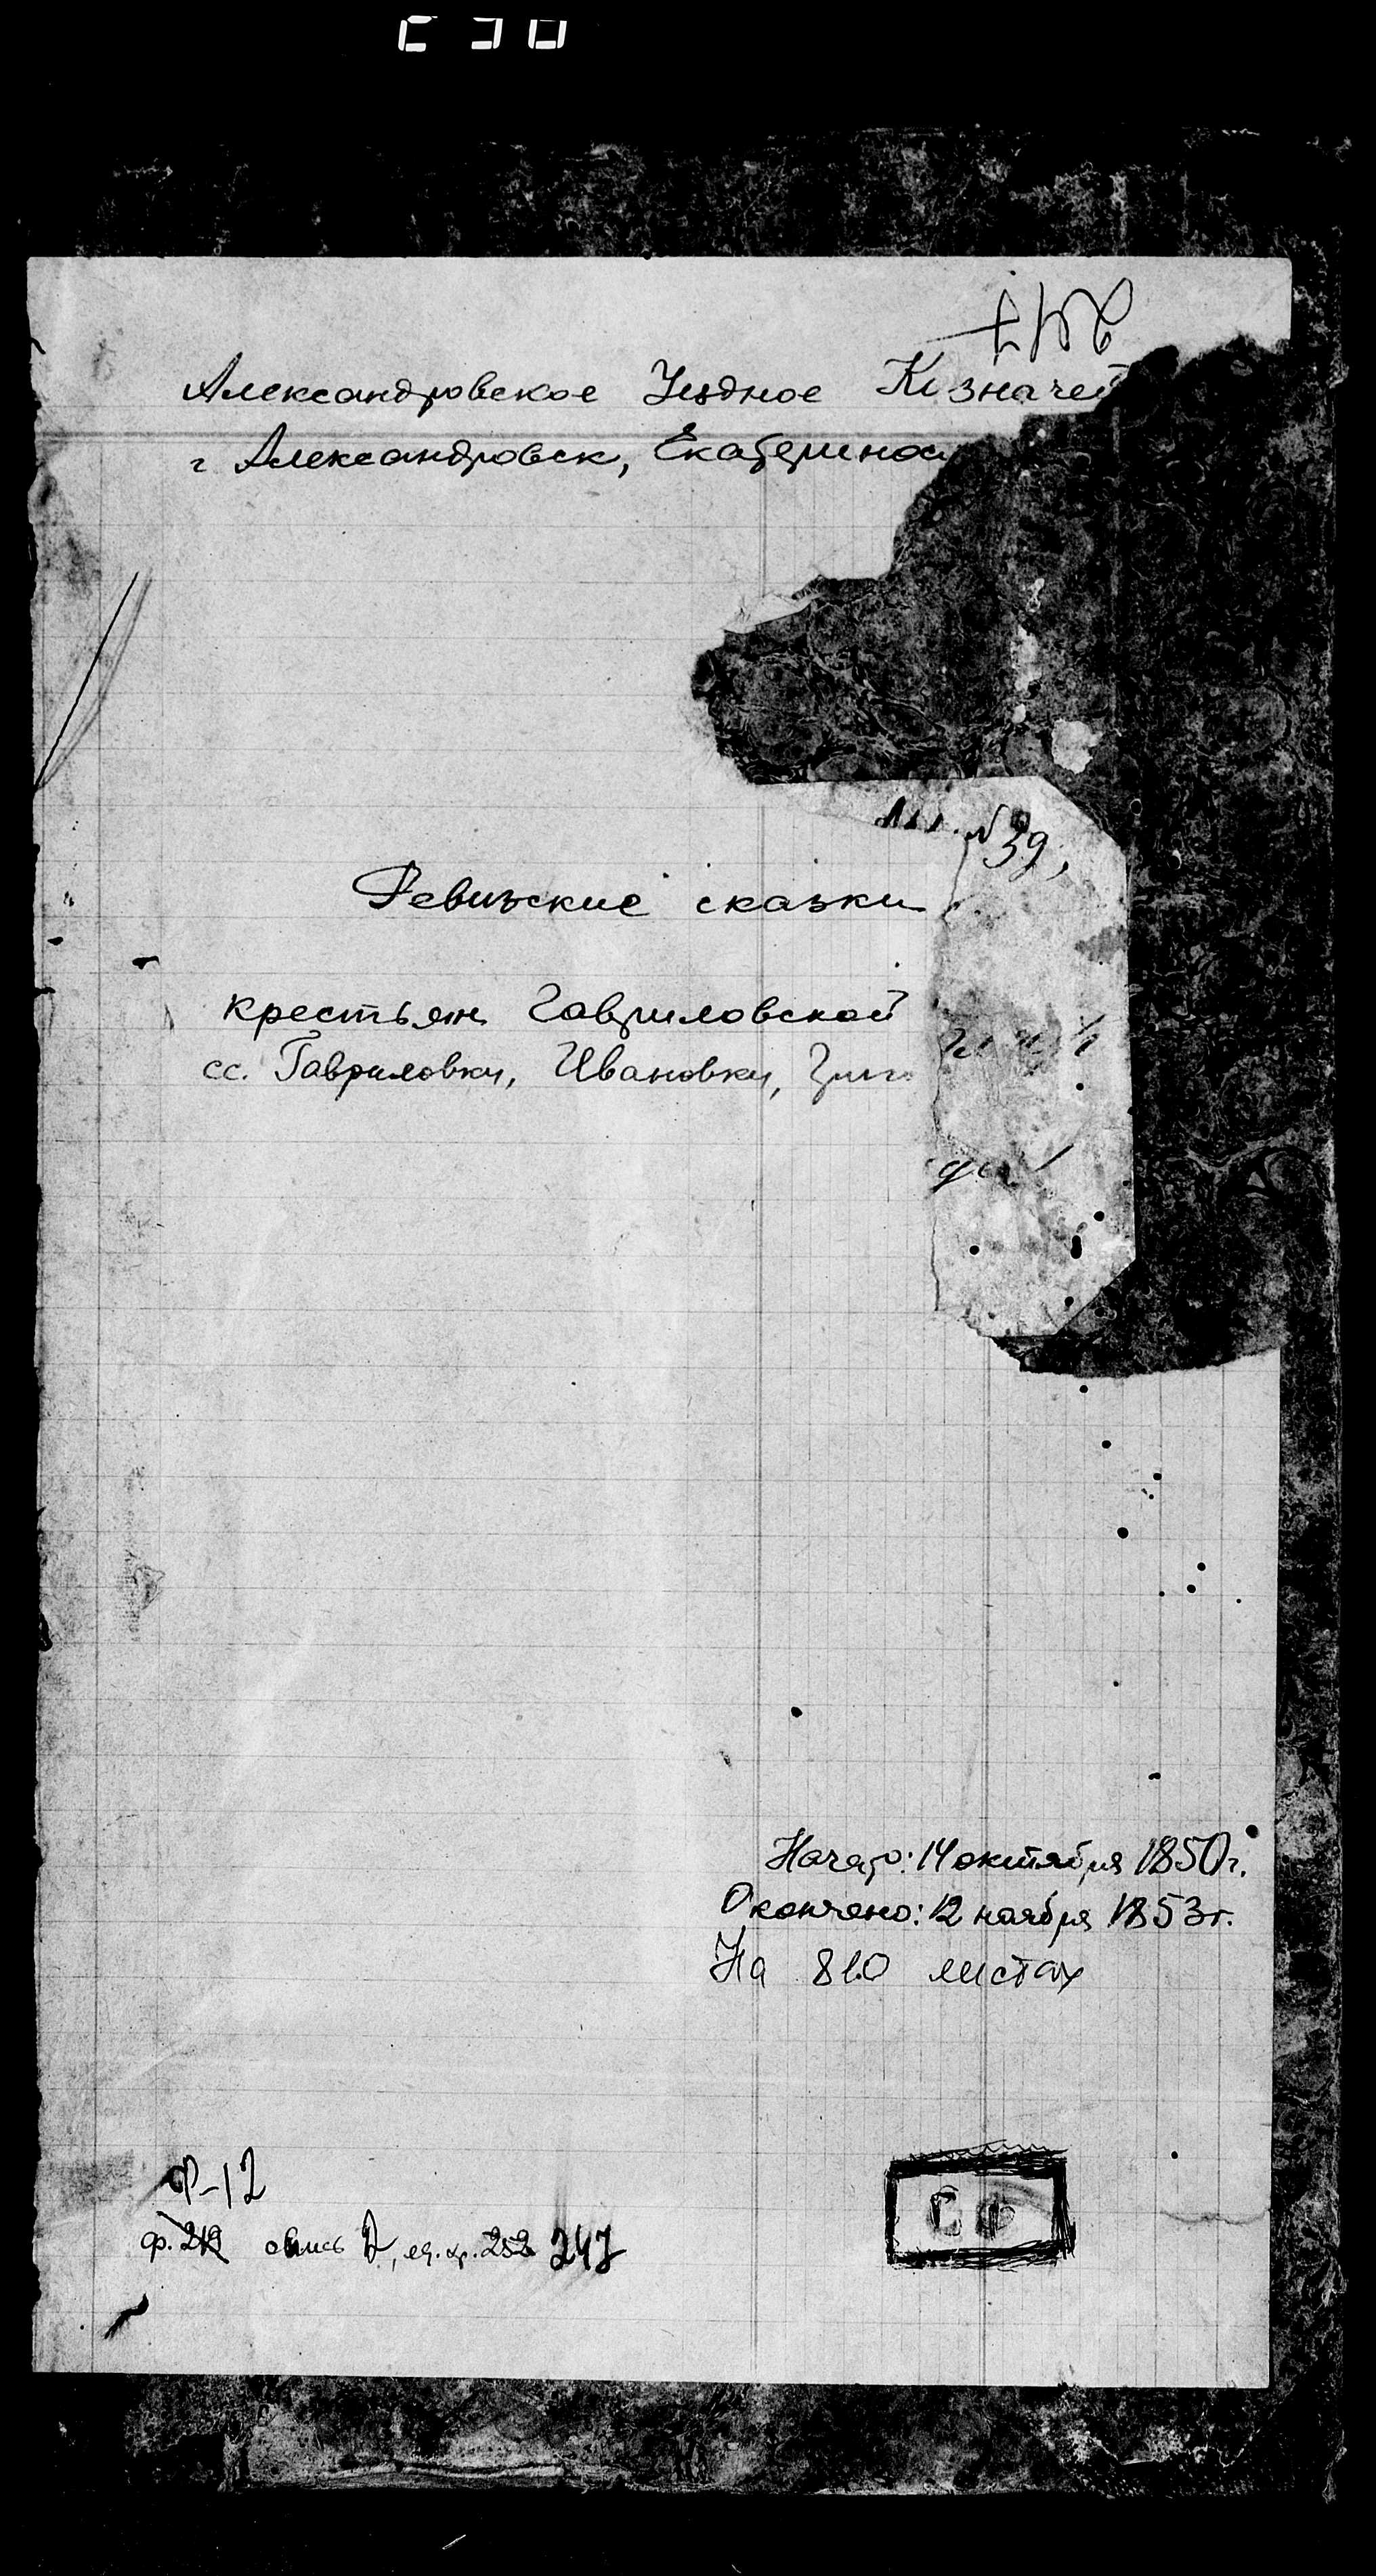 247
Александровское Уездное Казначей
г Александровск, Екатеринос
№ 39,
Ревизские сказки
крестьян Гавриловской
сс. Гавриловки, Ивановки,
Начато: 14 октября 1850 г.
Окончено: 12 ноября 1853 г.
На 810 листах
Ф-12
ф. 212 опись 2, ед. хр. 252 247
СФ